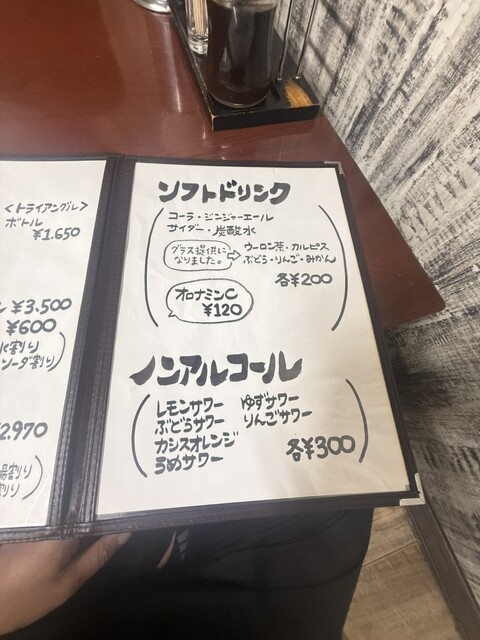 <トライアングル>
ボトル
¥1.650
¥3.500
¥600
水割り
ソーダ割り
2.970
湯割り
割り
ソフトドリンク
コーラ・ジンジャーエール
サイダー・炭酸水
グラス提供に
なりました。
ウーロン茶・カルピス
ぶどう・りんご・みかん
各¥200
オロナミンC
¥120
ノンアルコール
レモンサワー ゆずサワー
ぶどうサワー りんごサワー
カシスオレンジ
うめサワー
各¥300